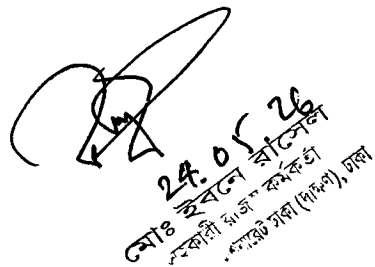 24.05.26
মোঃ ইবনে রাসেল
সহকারী রাজস্ব কর্মকর্তা
ঢাকা (দক্ষিণ), ঢাকা